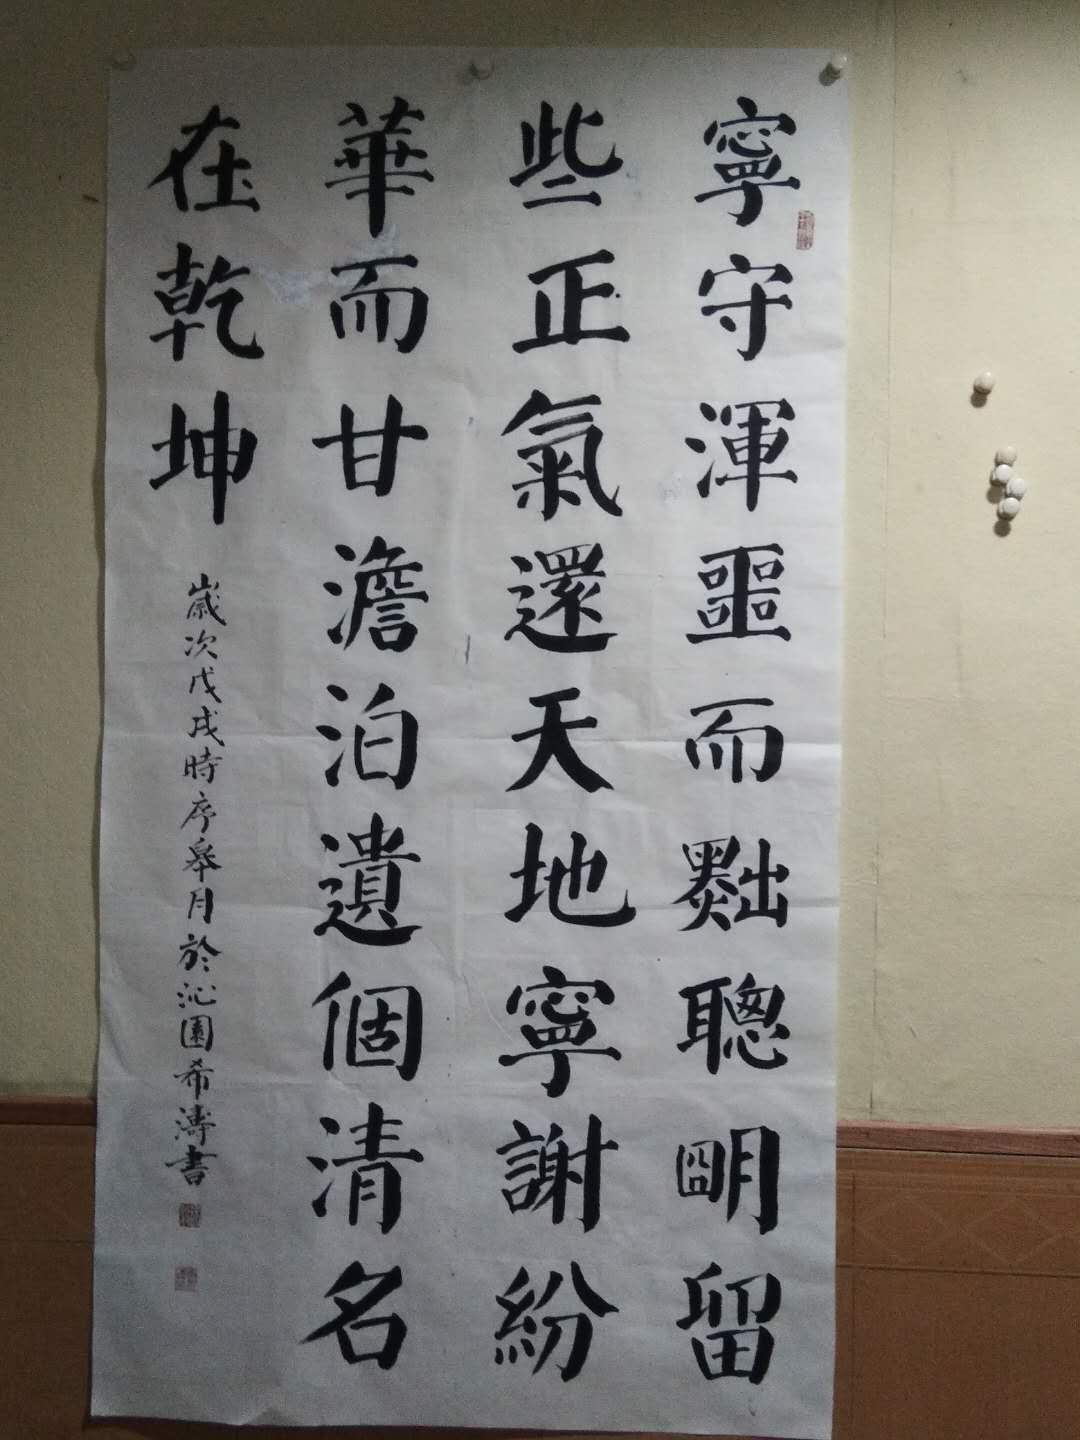 寧守渾噩而黜聰明留
些正氣還天地寧謝紛
華而甘澹泊遺個清名
在乾坤
歲次戊戌時序皋月於沁園希濤書